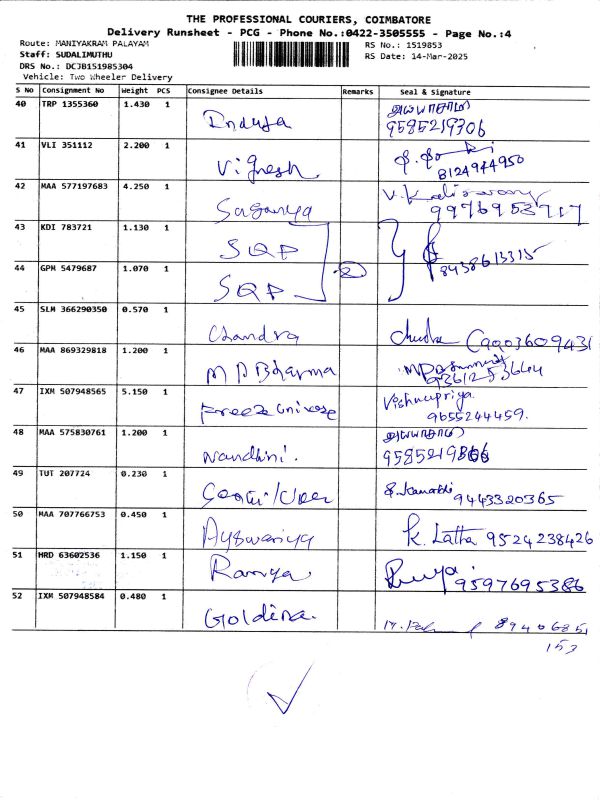 THE PROFESSIONAL COURIERS, COIMBATORE
Delivery Runsheet - PCG - Phone No.:0422-3505555 - Page No.:4
Route: MANIYAKRAM PALAYAM
RS No.: 1519853
Staff: SUDALIMUTHU
RS Date: 14-Mar-2025
DRS No.: DCJB151985304
Vehicle: Two Wheeler Delivery
S No Consignment No Weight PCS Consignee Details Remarks Seal & Signature
40 TRP 1355360 1.430 1
9585219306
41 VLI 351112 2.200 1 Vignesh
8124944950
42 MAA 577197683 4.250 1
43 KDI 783721 1.130 1 SQP
2 8438613315
44 GPM 5479687 1.070 1 SQP
45 SLM 366290350 0.570 1 Chandra
46 MAA 869329818 1.200 1 M P Dharma
47 IXM 507948565 5.150 1 Vishnupriya
9655244459.
48 MAA 575830761 1.200 1 Nandhini.
49 TUT 207724 0.230 1 9443320365
50 MAA 707766753 0.450 1 Ayswariya K. Latha 9524238426
51 HRD 63602536 1.150 1 Ramya 9597695386
52 IXM 507948584 0.480 1
153